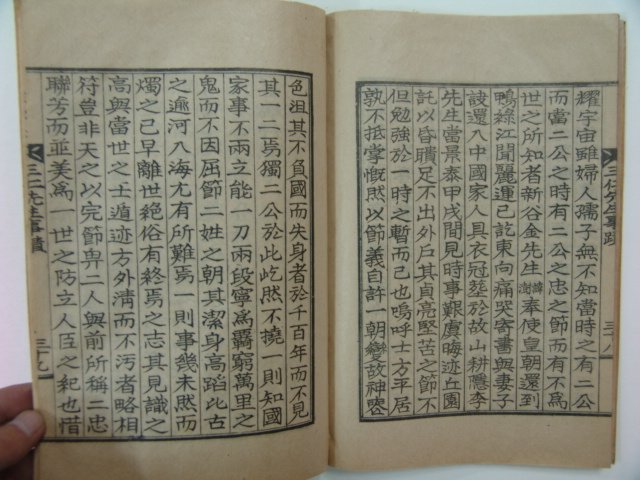 耀宇宙雖婦人孺子無不知當時之有二公
而當二公之時有二公之忠之節而有不爲
世之所知者新谷金先生澍奉使皇朝還到
鴨綠江聞麗運已訖東向痛哭寄書與妻子
訣還入中國家人具衣冠葬於故山耕隱李
先生當景泰甲戌間見時事艱虞晦迹丘園
託以昏聵足不出外戶其貞亮堅苦之節不
但勉強於一時之暫而已也嗚呼士方平居
孰不抵掌慨然以節義自許一朝變故神喪
三仁先生事蹟
三十八
色沮其不負國而失身者於千百年而不見
其一二焉獨二公於此屹然不撓一則知國
家事不兩立能一刀兩段寧爲羈窮萬里之
鬼而不因屈節二姓之朝其潔身高蹈比古
之逾河入海尤有所難焉一則事幾未然而
燭之已早離世絶俗有終焉之志其見識之
高與當世之士遁迹方外淸而不汚者略相
符豈非天之以完節畀二人與前所稱二忠
聯芳而並美爲一世之防立人臣之紀也惜
三仁先生事蹟
三十九